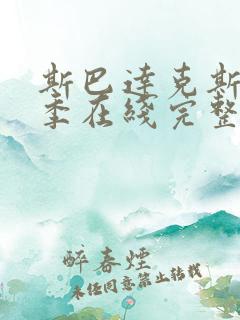 斯巴达克斯
季在线完整
醉春烟
未经同意禁止转载